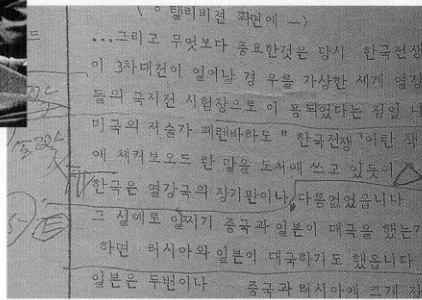 (ㅇ 텔리비젼 화면에 ㅡ)
드
...그리고 무엇보다 중요한것은 당시 한국전쟁
이 3차대전이 일어날 경우를 가상한 세계 열강
들의 국지전 시험장으로 이용되었다는 점입니
미국의 저술가 페렌바하도 "한국전쟁"이란 책
에 체커보오드 란 말을 도처에 쓰고 있듯이
한국은 열강국의 장기판이나 다름없었읍니다
그 실예로 일찌기 중국과 일본이 대국을 했는가
하면 러시아와 일본이 대국하기도 했읍니다
일본은 두번이나 중국과 러시아에 크게 잔